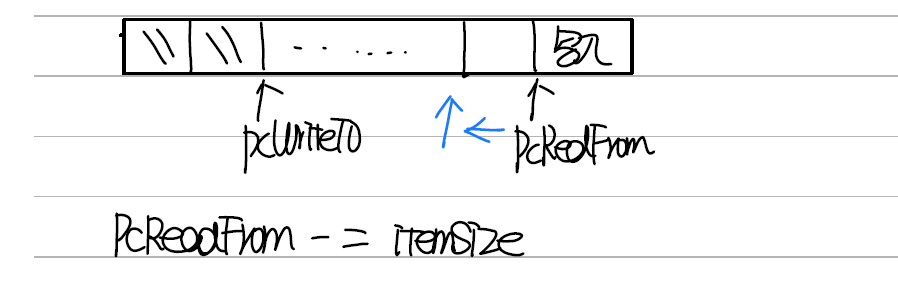 引入
pcWriteTo
pcReadFrom
PcReadFrom -= itemSize